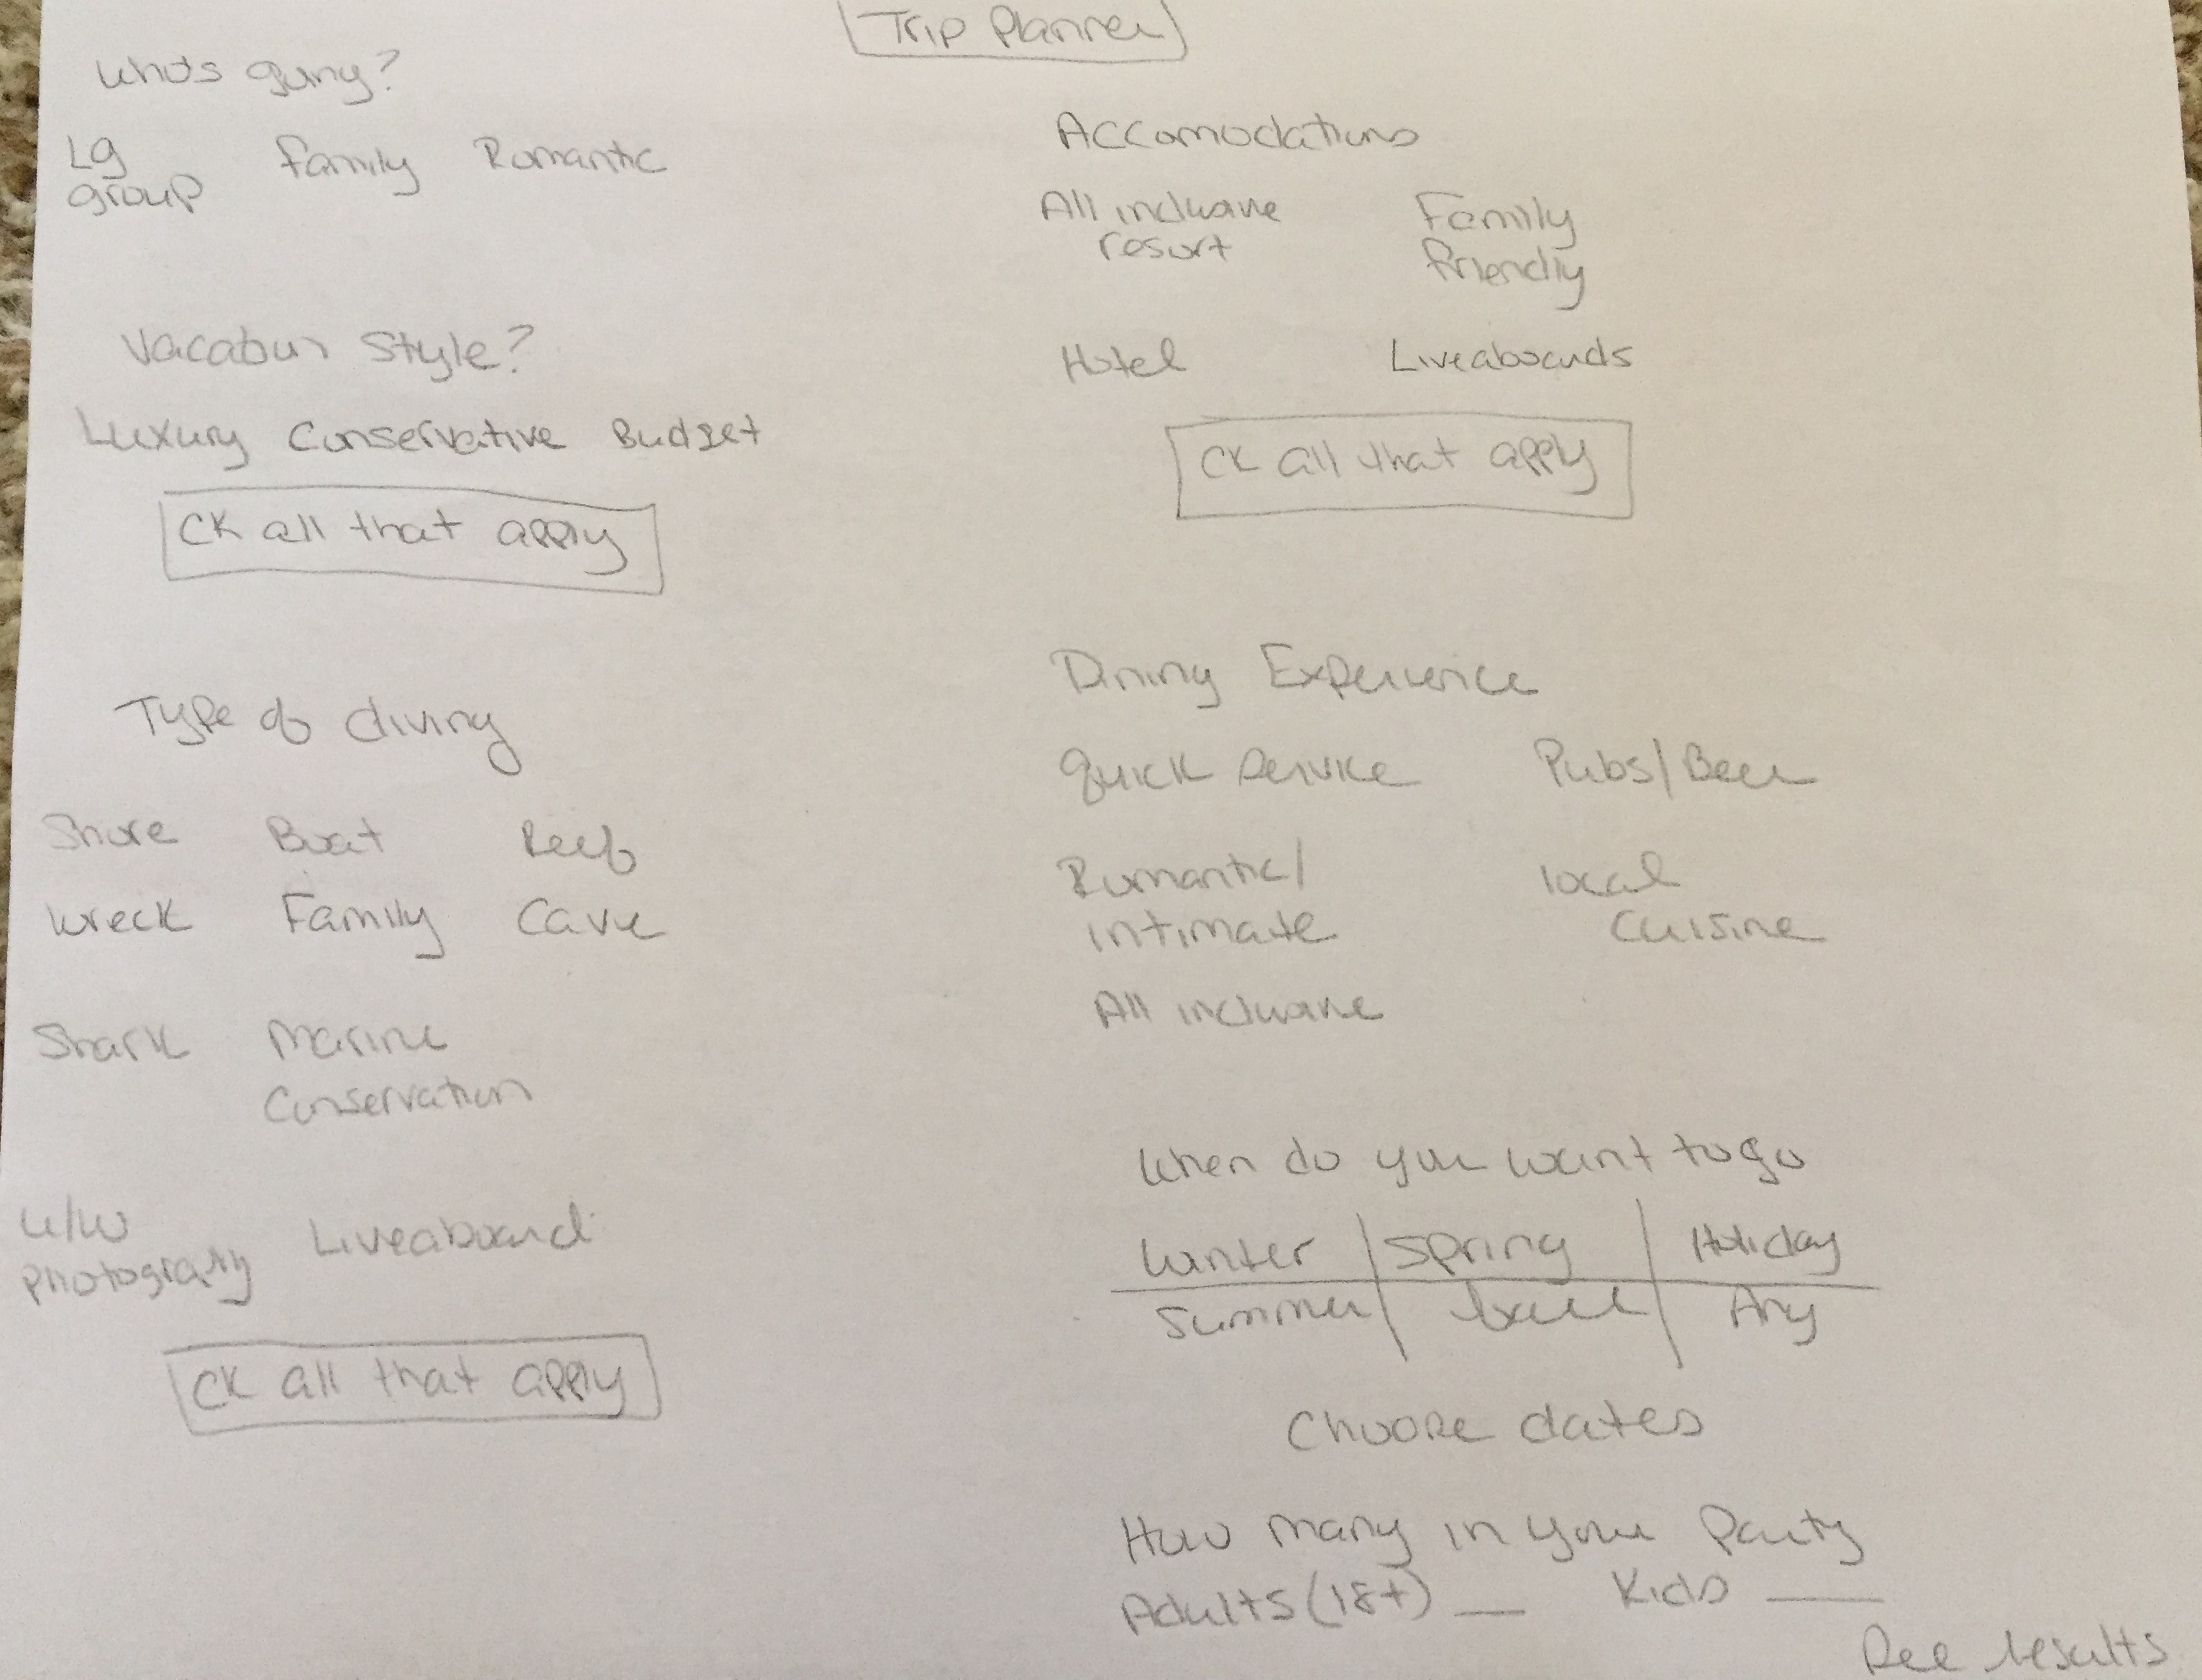 Trip Planner
Who's going?
Lg Family Romantic
group
Vacation Style?
Luxury Conservative Budget
CK all that apply
Type of diving
Shore Boat Reef
Wreck Family Cave
Shark Marine
Conservation
u/w Liveaboard
photography
CK all that apply
Accomodations
All inclusive Family
resort friendly
Hotel Liveaboards
CK all that apply
Dining Experience
quick service Pubs/Beer
Romantic/ local
intimate Cuisine
All inclusive
When do you want to go
Winter Spring Holiday
Summer fall Any
Choose dates
How many in your Party
Adults (18+) __ Kids ___
See results